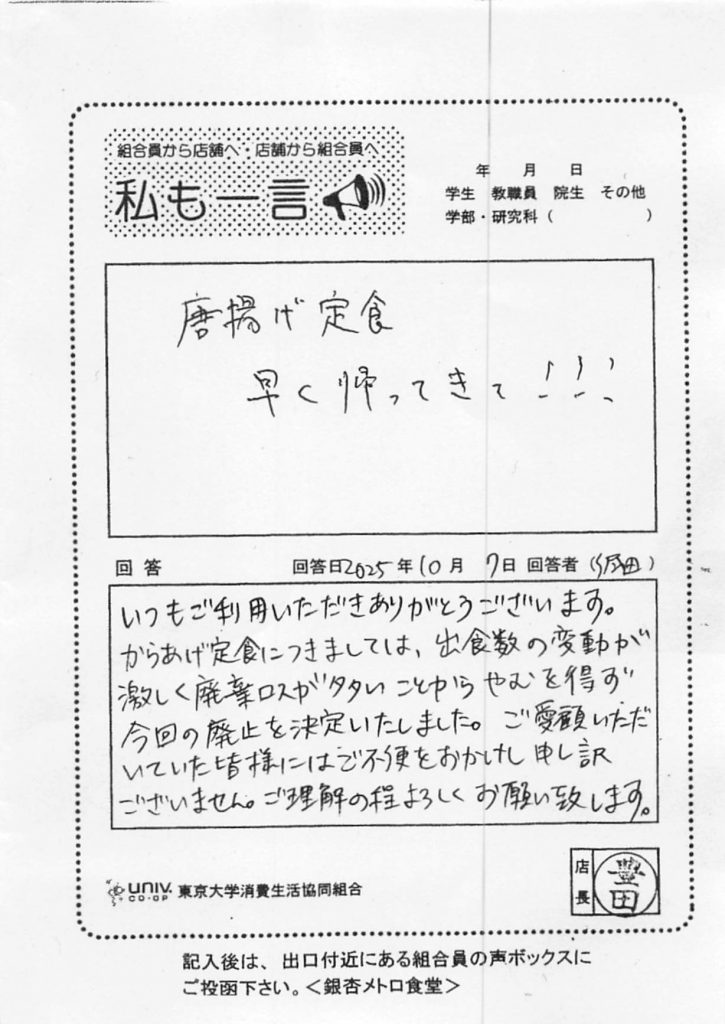 組合員から店舗へ・店舗から組合員へ
私も一言
年 月 日
学生 教職員 院生 その他
学部・研究科（ ）
唐揚げ定食
早く帰ってきて！！！
回答 回答日2025年10月7日 回答者（ 田）
いつもご利用いただきありがとうございます。
からあげ定食につきましては、出食数の変動が
激しく廃棄ロスが多いことからやむを得ず
今回の廃止を決定いたしました。ご愛顧いただ
いていた皆様にはご不便をおかけし申し訳
ございません。ご理解の程よろしくお願い致します。
UNIV. CO-OP 東京大学消費生活協同組合
店長 豊田
記入後は、出口付近にある組合員の声ボックスに
ご投函下さい。＜銀杏メトロ食堂＞